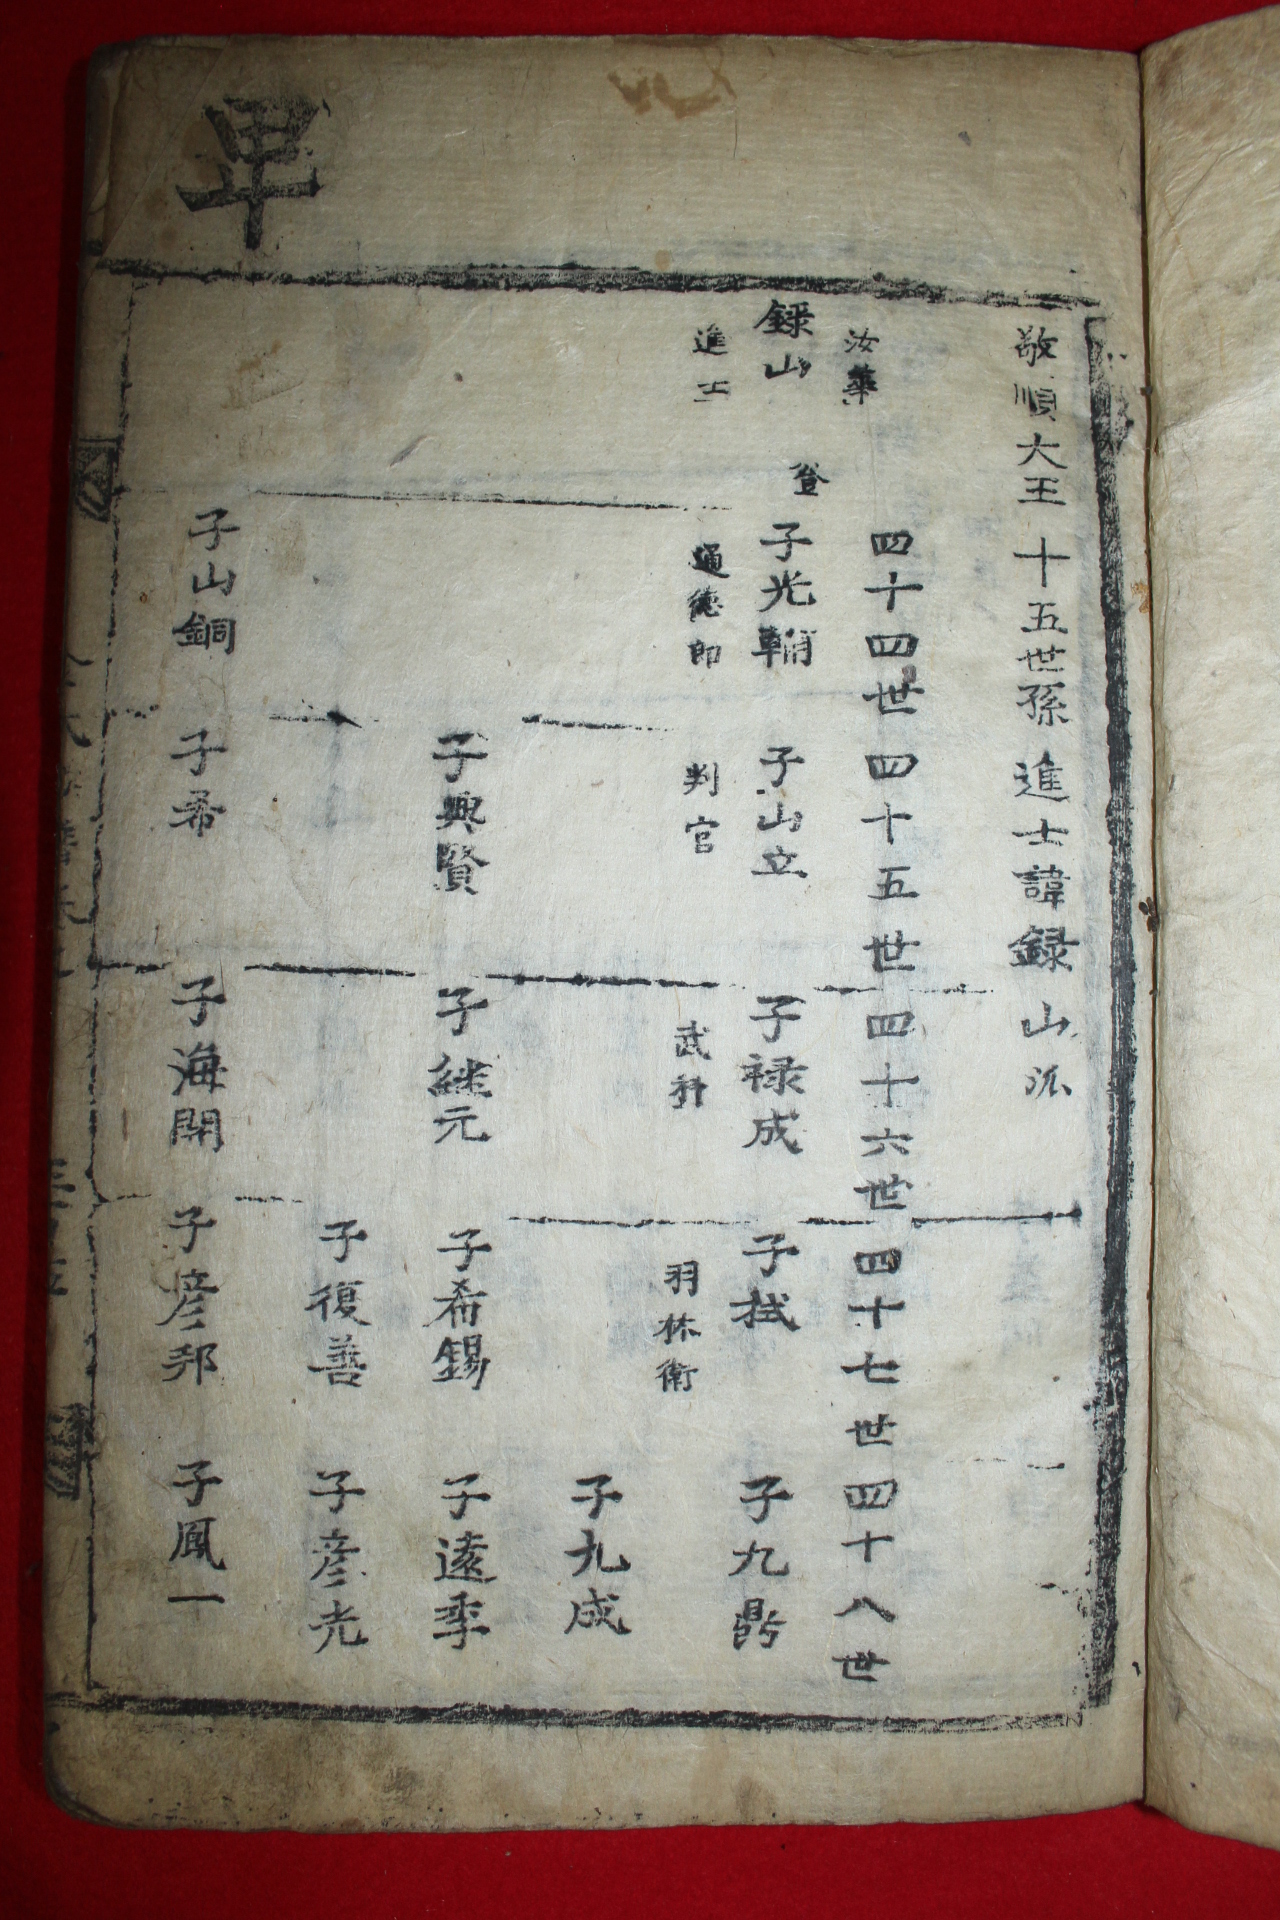 敬順大王十五世孫進士諱録山派
汝華
四十四世四十五世四十六世四十七世四十八世
録山
進士
登
子光輔
通德郎
子山立
判官
子禄成
武科
子拭
羽林衛
子九鼎
子九成
子興賢
子継元
子希錫
子遠季
子復善
子彦光
子山銅
子希
子海開
子彦邦
子鳳一